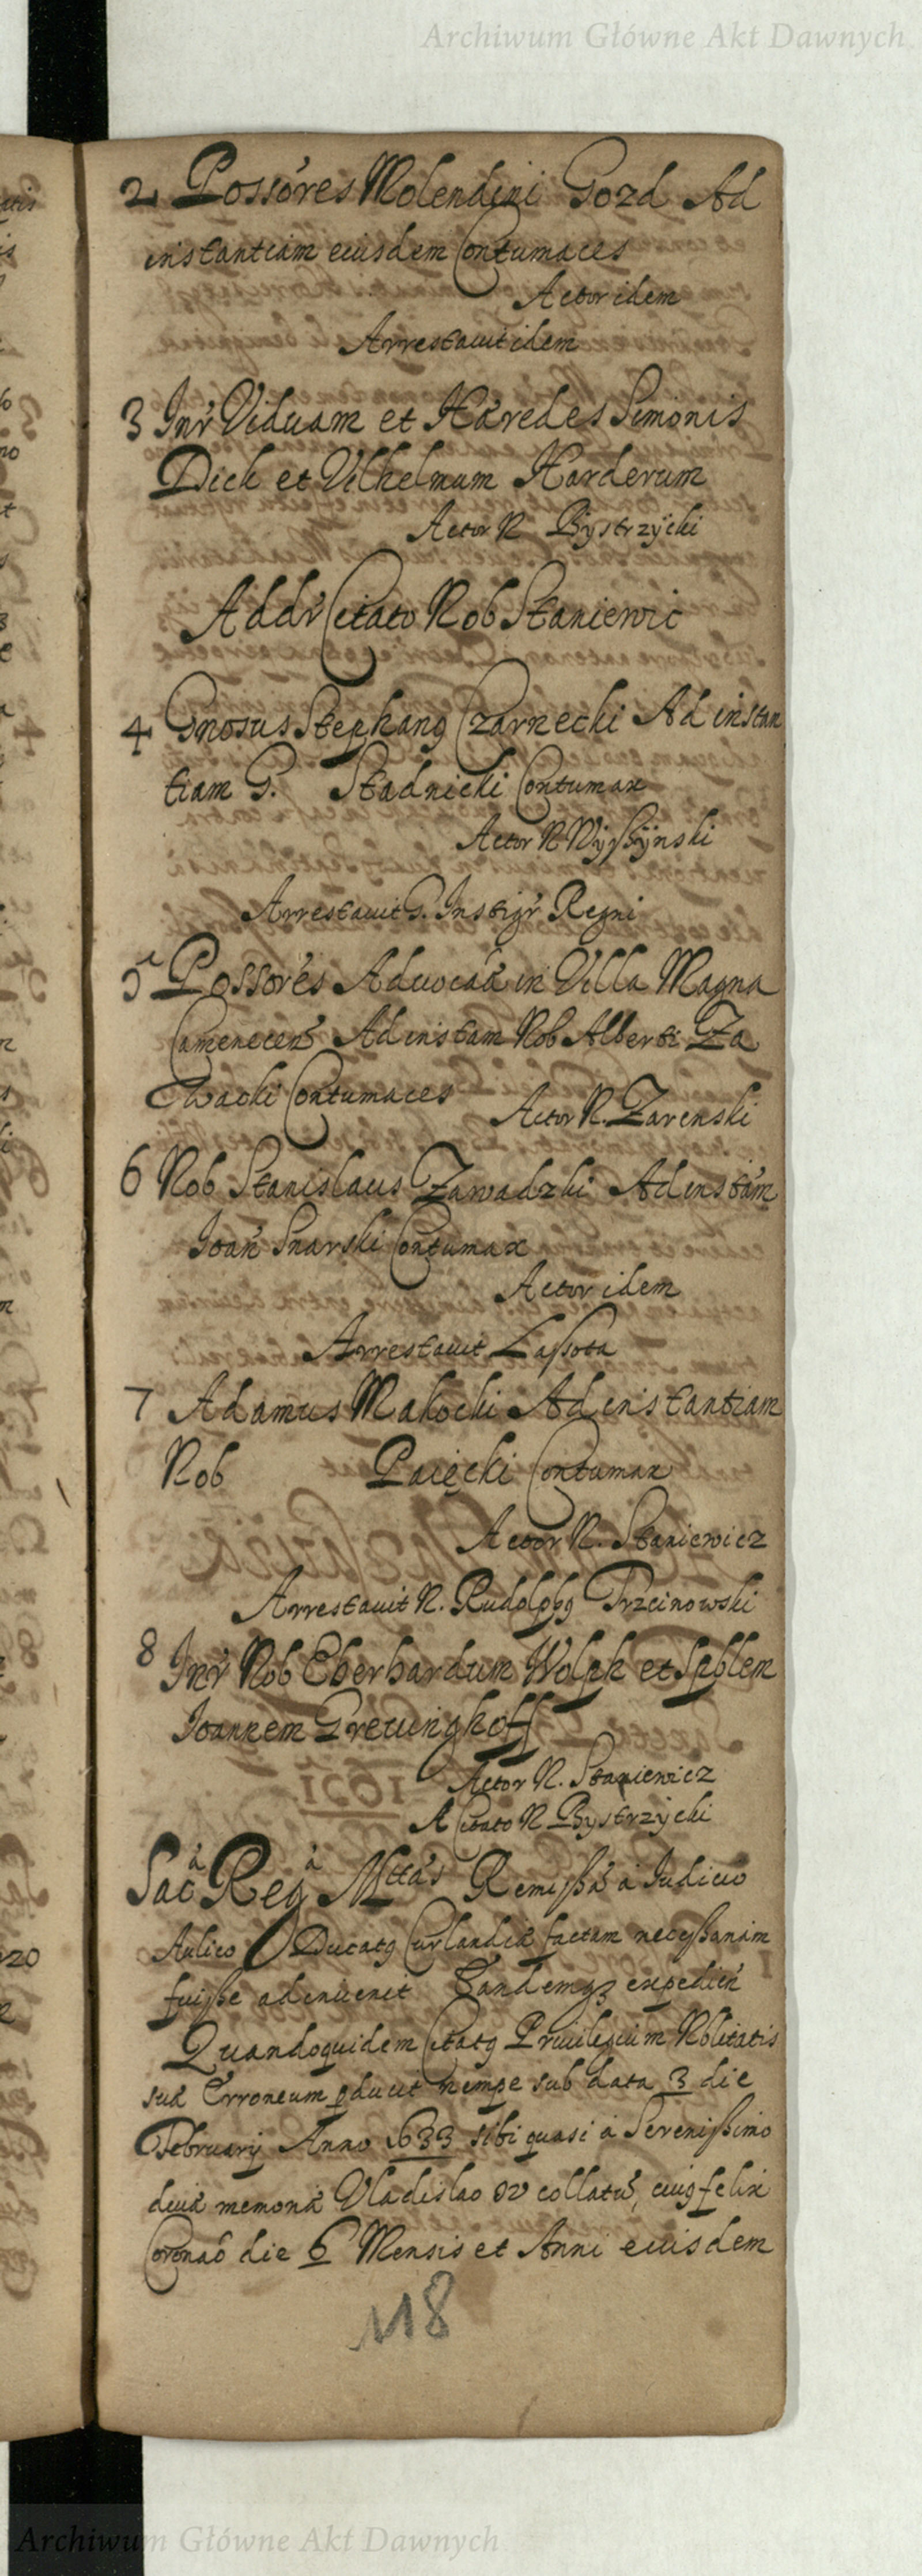 Archiwum Główne Akt Dawnych
2 Possóres Molendini Gozd Ad
instantiam eiusdem Contumaces
Actor idem
Arrestauit idem
3 Inr̃ Viduam et Hæredes Simonis
Dick et Vilhelmum Harderum
Actor N Bÿstrzÿcki
Addr̃ Citato Nob Staniewic
4 Gnosus Stephang Czarnecki Ad instan
tiam G. Stadnicki Contumax
Actor N Wÿsßÿnski
Arrestauit G. Instigr̃ Regni
5 Possorẽs Aduocaã in Villa Magna
Cameneceñ Ad instam Nob Alberti Za
Actor N. Zarenski
6 Nob Stanislaus Zawadzki Ad instam̃
Ioañ Snarski Contumax
Actor idem
Arrestauit Lassota
7 Adamus Makocki Ad instantiam
Nob Paięcki Contumax
Actor N. Staniewicz
Arrestauit N. Rudolphg Trzcinowski
8 Inr̃ Nob Eberhardum Wolph et Spblem
Ioannem Greuinghoff
Actor N. Staniewicz
A Citato N Bystrzycki
Sac̃ Reg̃ Mttás Remissã a Iudicio
Aulico Ducatg Curlandiæ factam necessariam
fuisse adinuenit Tandemqz expedieñ
Quandoquidem Citatg Priuilegium Nblitatis
suæ Erroneum pducit nempe sub data 3 die
Februarij Anno 633 sibi quasi a Serenissimo
diuæ memoriæ Vladislao IV collatũ, cuig felix
Coronaõ die 6 Mensis et Anni eiusdem
118
Archiwum Główne Akt Dawnych